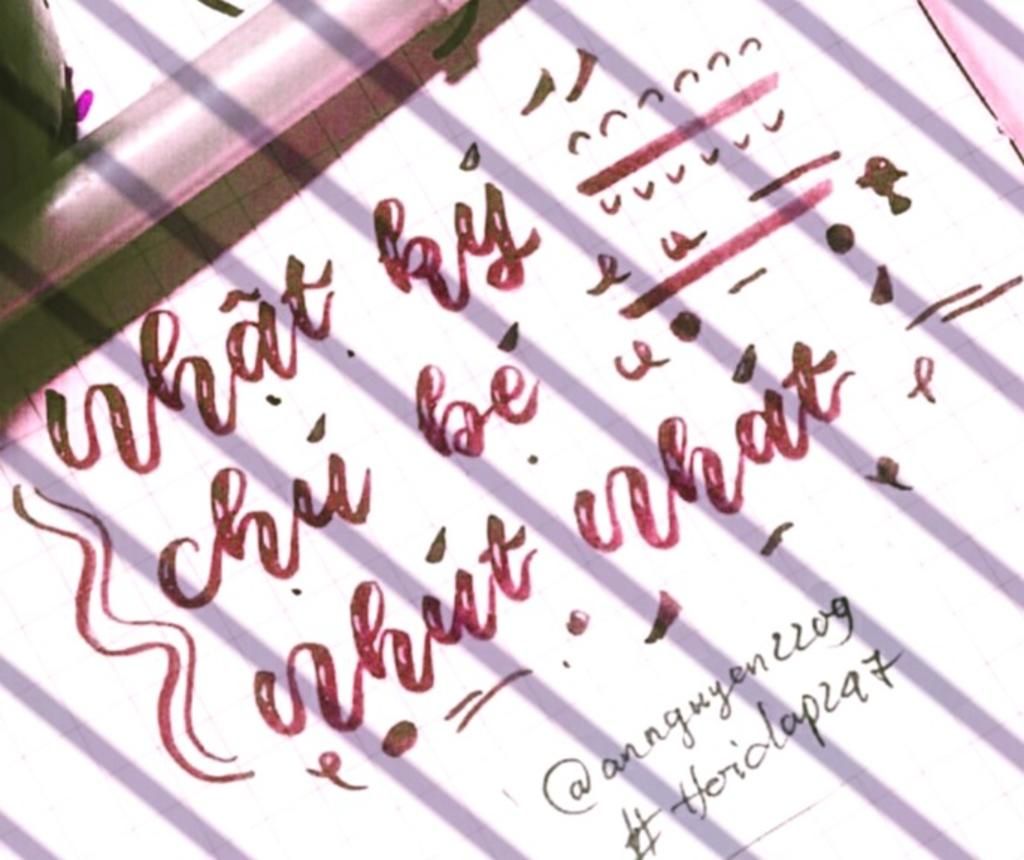 nhật ký
chú bé
nhút nhát
@annguyen2209
#Hoidap247